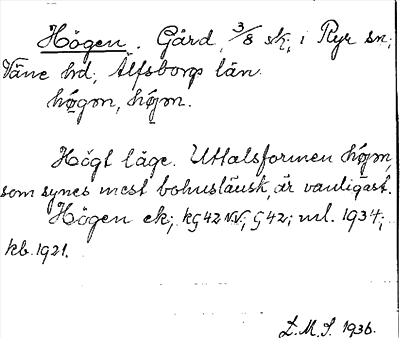 Högen. Gård, 3/8 sk, i Ryr sn,
Väne hd, Älfsborgs län.
Högt läge. Uttalsformen
som synes mest bohuslänsk, är vanligast.
Högen ek; kg 42 NV; g 42; ml. 1934;
kb. 1921.
L.M.S. 1936.